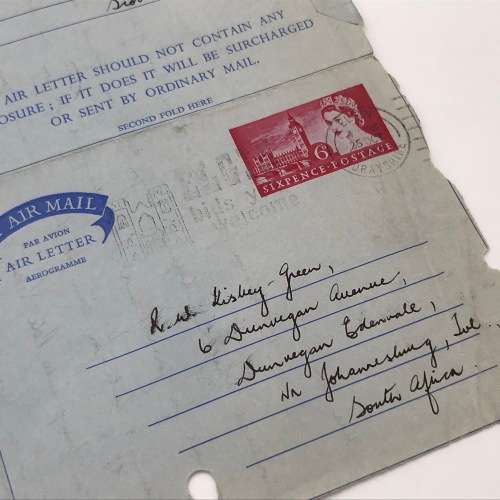 AIR LETTER SHOULD NOT CONTAIN ANY
OSURE; IF IT DOES IT WILL BE SURCHARGED
OR SENT BY ORDINARY MAIL.
SECOND FOLD HERE
6D
SIXPENCE·POSTAGE
25
bids you
welcome
AIR MAIL
PAR AVION
AIR LETTER
AEROGRAMME
R. W. Kisbey-Green,
6 Dunvegan Avenue,
Dunvegan Edenvale,
Nr Johannesburg, Tvl.
South Africa.